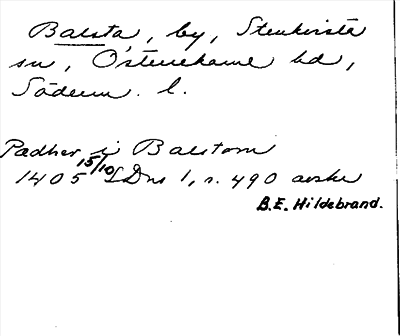 Balsta, by, Stenkvista
sn, Österrekarne hd,
Söderm. l.
Pædher j Balstom
1405 15/10 SDns 1, s. 490 avskr
B.E. Hildebrand.